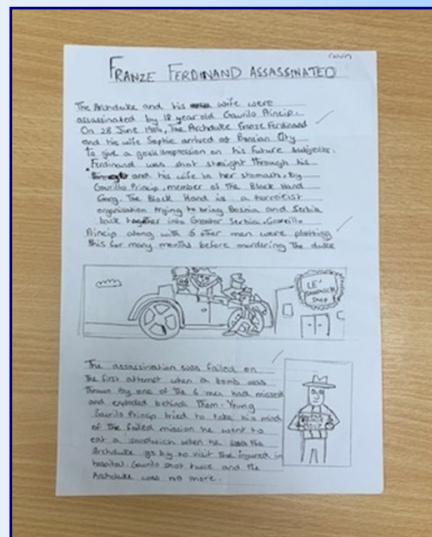 FRANZE FERDINAND ASSASSINATED
The Archduke and his wife were
assassinated by 19 year old Gavrilo Princip.
On 28 June 1914, The Archduke Franze Ferdinand
and his wife Sophie arrived at Bosnian City
to give a good impression on his future subjects.
Ferdinand was shot straight through his
and his wife in her stomach, by
Gavrilo Princip, member of The Black Hand
Gang. The Black Hand is a terrorist
organisation trying to bring Bosnia and Serbia
back together into Greater Serbia. Gavrilo
Princip along with 6 other men were plotting
this for many months before murdering the duke
LE'
SANDWICH
SHOP
The assassination was failed on
the first attempt when a bomb was
thrown by one of the 6 men had missed
and exploded behind them. Young
Gavrilo Princip tried to take his mind
of the failed mission he went to
eat a sandwich when he saw the
Archduke go by to visit the injured in
hospital. Gavrilo shot twice and the
Archduke was no more.